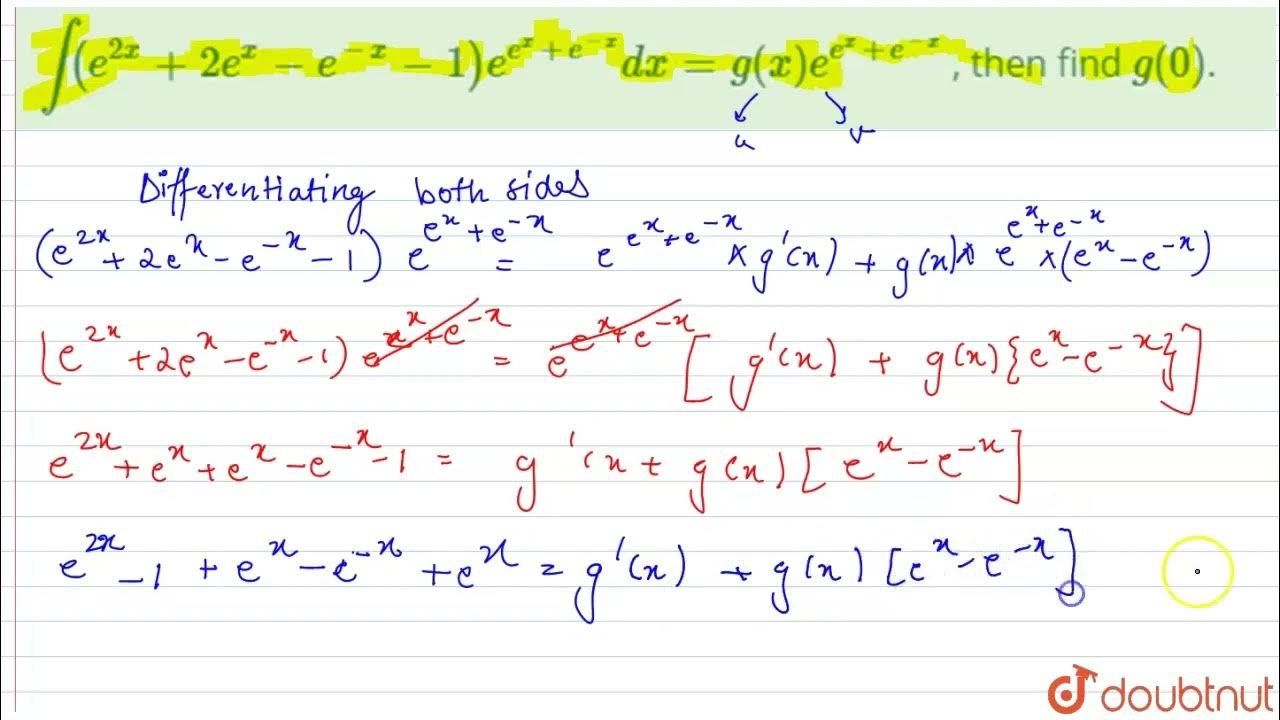 ∫(e^{2x} + 2e^x − e^{−x} − 1)e^{e^x + e^{−x}} dx = g(x)e^{e^x + e^{−x}}, then find g(0).
u v
Differentiating both sides
(e^{2x} + 2e^x − e^{−x} − 1) e^{e^x + e^{−x}} = e^{e^x + e^{−x}} × g'(x) + g(x) × e^{e^x + e^{−x}} × (e^x − e^{−x})
(e^{2x} + 2e^x − e^{−x} − 1) e^{e^x + e^{−x}} = e^{e^x + e^{−x}} [ g'(x) + g(x) {e^x − e^{−x}} ]
e^{2x} + e^x + e^x − e^{−x} − 1 = g'(x + g(x) [ e^x − e^{−x} ]
e^{2x} − 1 + e^x − e^{−x} + e^x = g'(x) + g(x) [e^x − e^{−x}]
doubtnut